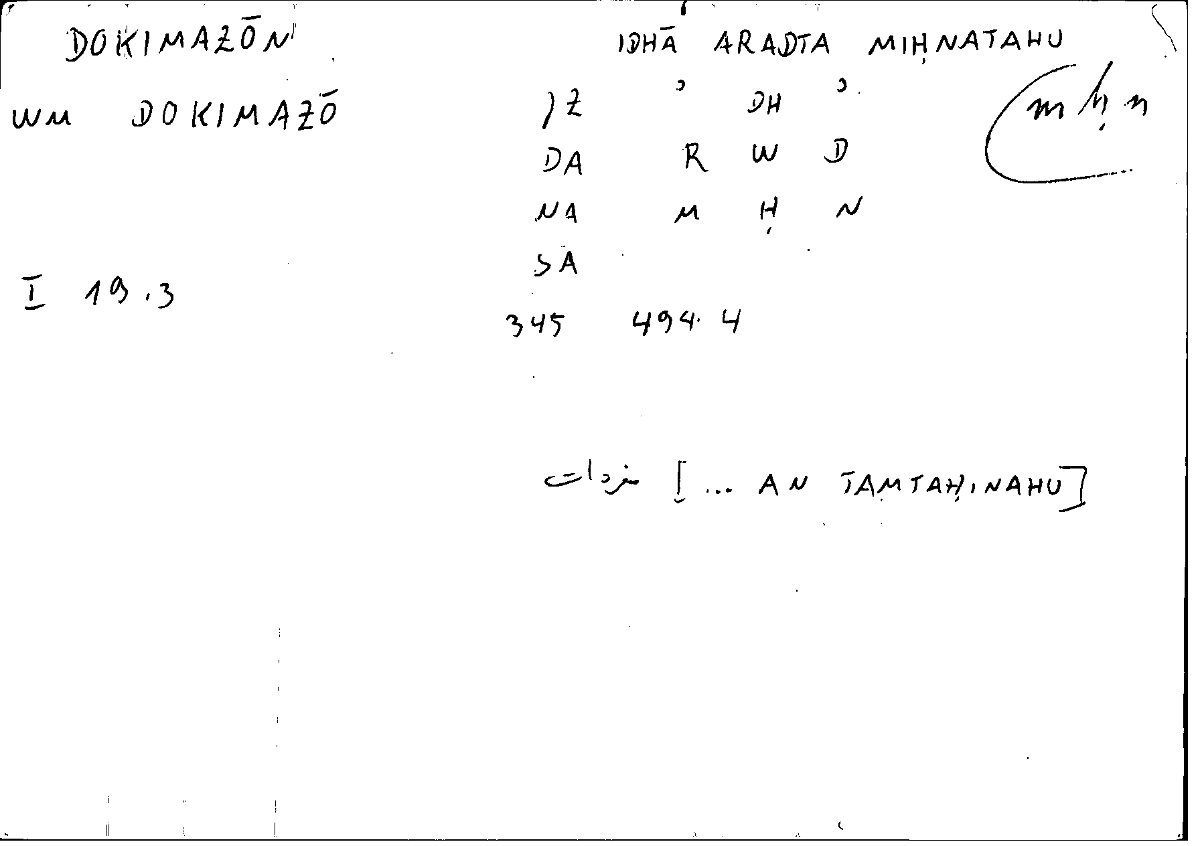 DOKIMAZŌN IDHĀ ARADTA MIḤNATAHU
WM DOKIMAZŌ )Z ʾ DH ʾ mḥn
DA R W D
NA M Ḥ N
SA
I 19.3
345 494.4
مفردات [... AN TAMTAḤINAHU]